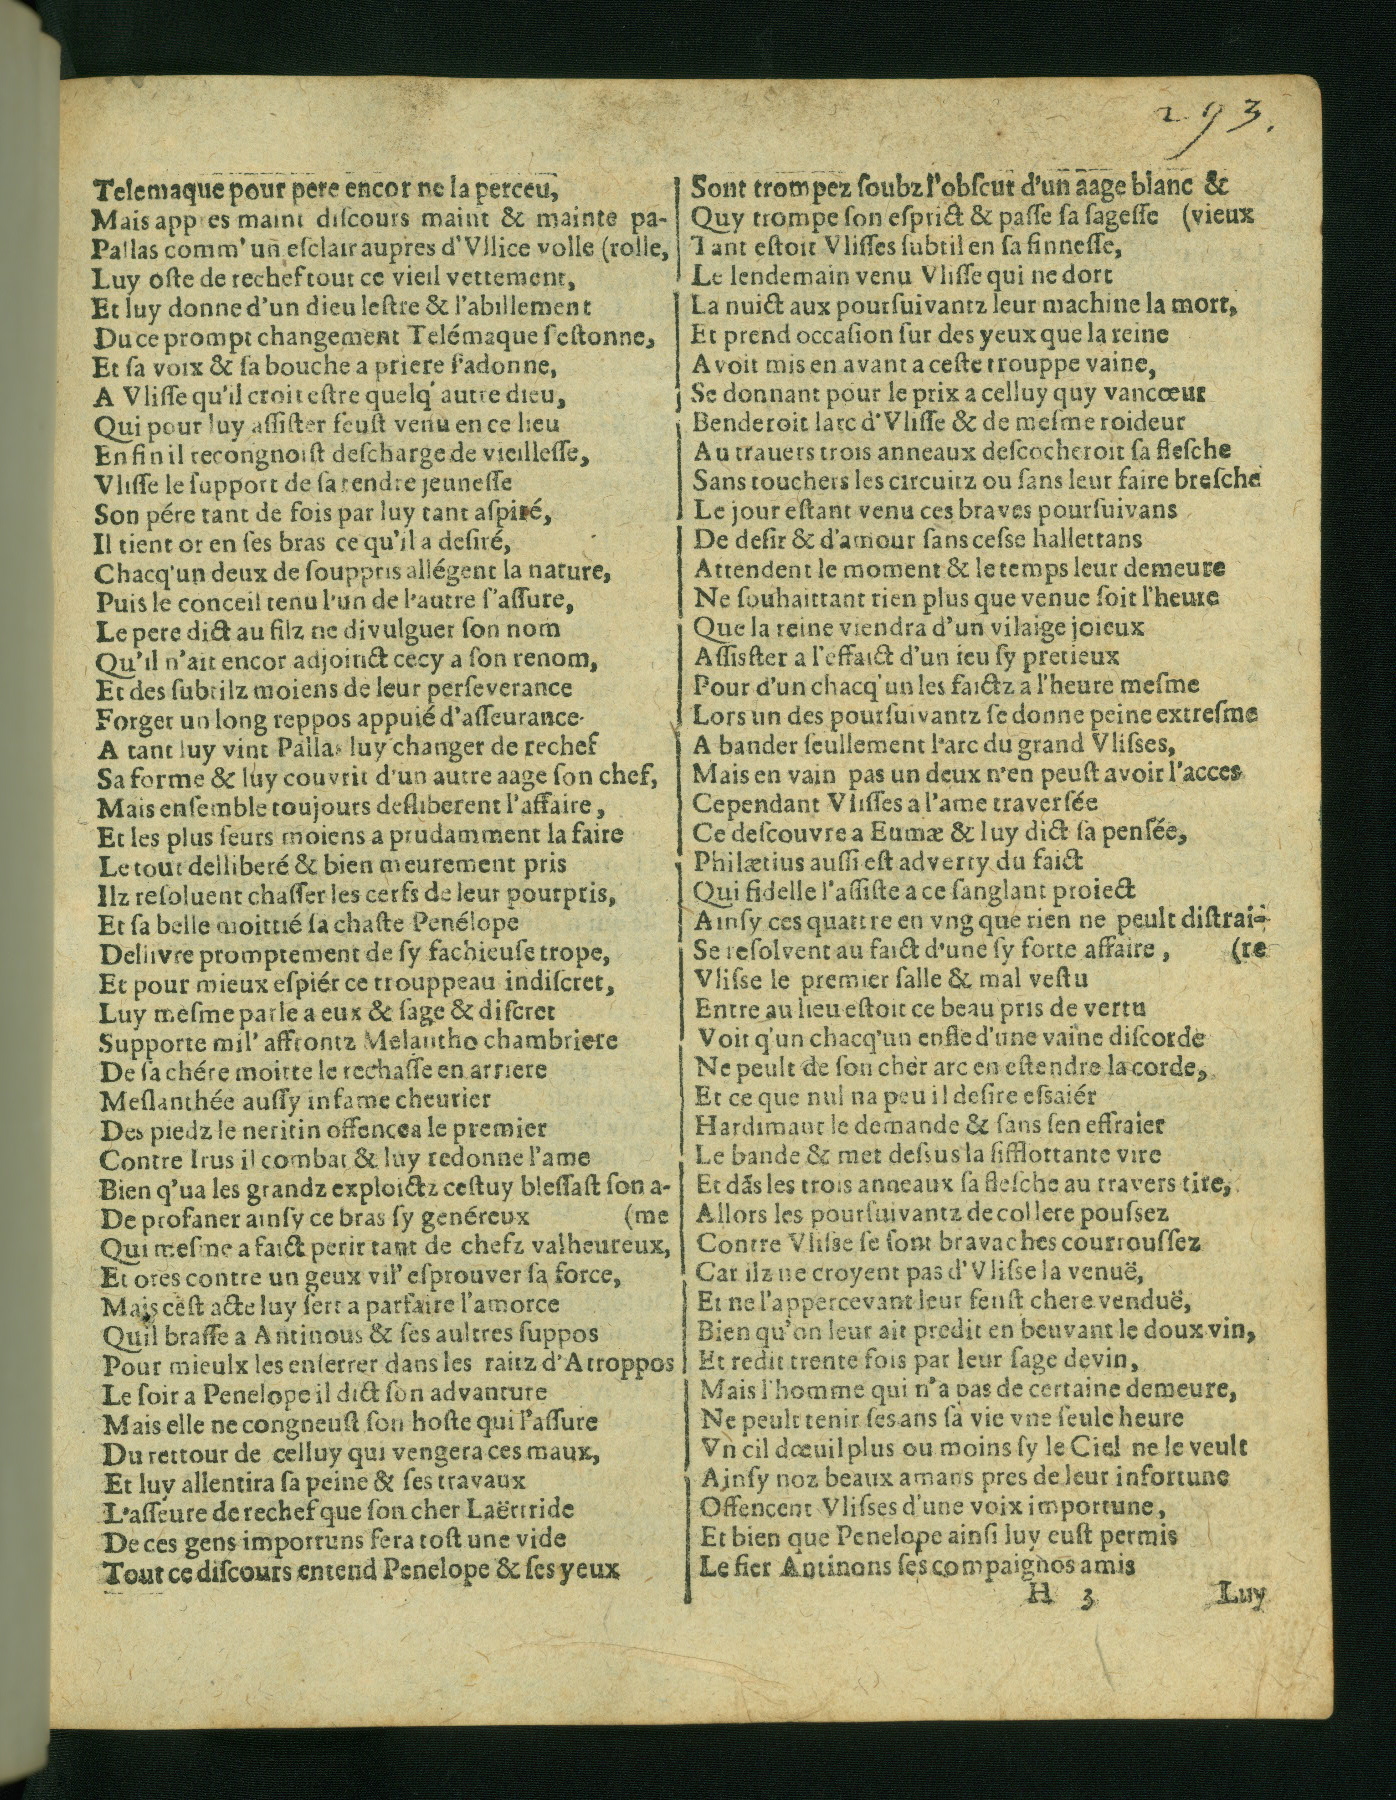 293.
Telemaque pour pere encor ne la perceu,
Mais app es maint discours maint & mainte pa-
Pallas comm' un esclair aupres d'Vllice volle (rolle,
Luy oste de rechef tout ce vieil vettement,
Et luy donne d'un dieu lestre & l'abillement
Du ce prompt changement Telémaque s'estonne,
Et sa voix & sa bouche a priere s'adonne,
A Vlisse qu'il croit estre quelq' autre dieu,
Qui pour luy assister feust venu en ce lieu
En fin il recongnoist descharge de vieillesse,
Vlisse le support de sa tendre jeunesse
Son pére tant de fois par luy tant aspiré,
Il tient or en ses bras ce qu'il a desiré,
Chacq'un deux de souppris allégent la nature,
Puis le conceil tenu l'un de l'autre s'assure,
Le pere dict au filz ne divulguer son nom
Qu'il n'ait encor adjoinct cecy a son renom,
Et des subtilz moiens de leur perseverance
Forger un long reppos appuié d'asseurance.
A tant luy vint Pallas luy changer de rechef
Sa forme & luy couvrit d'un autre aage son chef,
Mais ensemble toujours desliberent l'affaire,
Et les plus seurs moiens a prudamment la faire
Le tout delliberé & bien meurement pris
Ilz resoluent chasser les cerfs de leur pourpris,
Et sa belle moittié sa chaste Penélope
Dellivre promptement de sy fachieuse trope,
Et pour mieux espiér ce trouppeau indiscret,
Luy mesme parle a eux & sage & discret
Supporte mil' affrontz Melantho chambriere
De sa chére moitte le rechasse en arriere
Meslanthée aussy infame cheurier
Des piedz le neritin offencea le premier
Contre Irus il combat & luy redonne l'ame
Bien q'ua les grandz exploictz cestuy blessast son a-
De profaner ainsy ce bras sy genéreux (me
Qui mesme a faict perir tant de chefz valheureux,
Et ores contre un geux vil' esprouver sa force,
Mais cést acte luy sert a parfaire l'amorce
Quil brasse a Antinous & ses aultres suppos
Pour mieulx les enserrer dans les raitz d'Atroppos
Le soir a Penelope il dict son advanture
Mais elle ne congneust son hoste qui l'assure
Du rettour de celluy qui vengera ces maux,
Et luy allentira sa peine & ses travaux
L'asseure de rechef que son cher Laërtride
De ces gens importuns fera tost une vide
Tout ce discours entend Penelope & ses yeux
Sont trompez soubz l'obscur d'un aage blanc &
Quy trompe son esprict & passe sa sagesse (vieux
Tant estoit Vlisses subtil en sa finnesse,
Le lendemain venu Vlisse qui ne dort
La nuict aux poursuivantz leur machine la mort,
Et prend occasion sur des yeux que la reine
Avoit mis en avant a ceste trouppe vaine,
Se donnant pour le prix a celluy quy vancœur
Benderoit larc d'Vlisse & de mesme roideur
Au trauers trois anneaux descocheroit sa flesche
Sans touchers les circuitz ou sans leur faire bresche
Le jour estant venu ces braves poursuivans
De desir & d'amour sans cesse hallettans
Attendent le moment & le temps leur demeure
Ne souhaittant rien plus que venue soit l'heure
Que la reine viendra d'un vilaige joieux
Assister a l'effaict d'un ieu sy pretieux
Pour d'un chacq'un les faictz a l'heure mesme
Lors un des poursuivantz se donne peine extresme
A bander seullement l'arc du grand Vlisses,
Mais en vain pas un deux n'en peust avoir l'acces
Cependant Vlisses a l'ame traversée
Ce descouvre a Eumæ & luy dict sa pensée,
Philætius aussi est adverty du faict
Qui fidelle l'assiste a ce sanglant proiect
Ainsy ces quattre en vng que rien ne peult distrai-
Se resolvent au faict d'une sy forte affaire, (re
Vlisse le premier salle & mal vestu
Entre au lieu estoit ce beau pris de vertu
Voit q'un chacq'un enfle d'une vaine discorde
Ne peult de son cher arc en estendre la corde,
Et ce que nul na peu il desire essaiér
Hardimant le demande & sans sen effraier
Le bande & met dessus la sifflottante vire
Et dãs les trois anneaux sa flesche au travers tire,
Allors les poursuivantz de collere poussez
Contre Vlisse se font bravaches courroussez
Car ilz ne croyent pas d'Vlisse la venuë,
Et ne l'appercevant leur feust chere venduë,
Bien qu'on leur ait predit en beuvant le doux vin,
Et redit trente fois par leur sage devin,
Mais l'homme qui n'a pas de certaine demeure,
Ne peult tenir ses ans sa vie vne seule heure
Vn cil dœuil plus ou moins sy le Ciel ne le veult
Ainsy noz beaux amans pres de leur infortune
Offencent Vlisses d'une voix importune,
Et bien que Penelope ainsi luy eust permis
Le fier Antinons ses compaignos amis
H 3 Luy